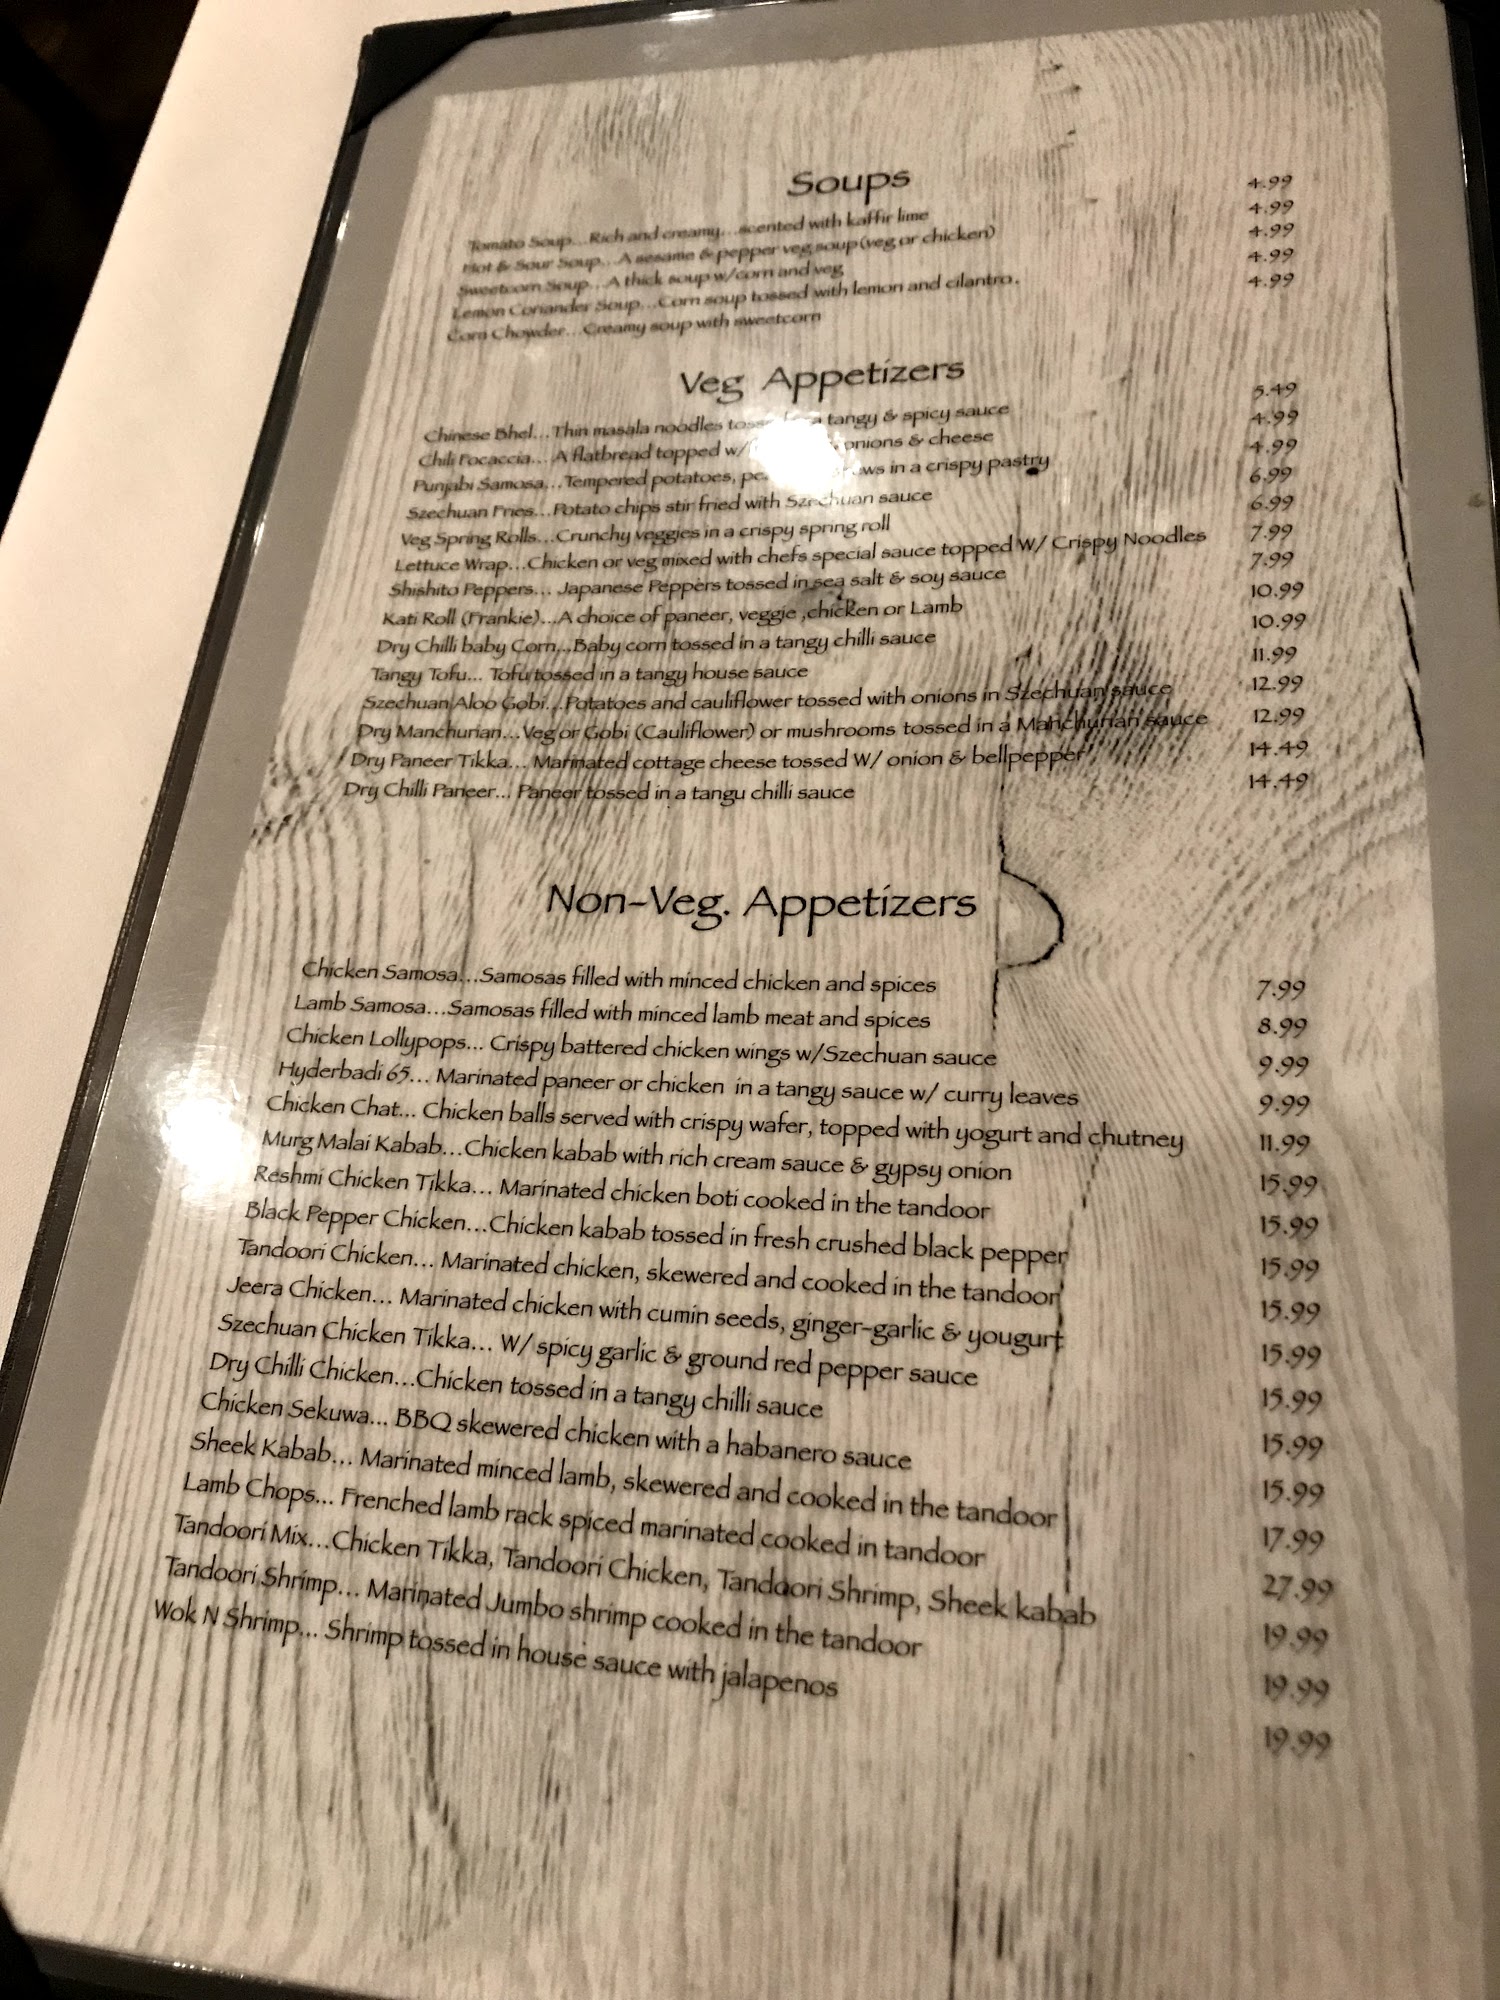 Soups
Tomato Soup...Rich and creamy...scented with kaffir lime 4.99
Hot & Sour Soup...A sesame & pepper veg soup (veg or chicken) 4.99
Sweetcorn Soup...A thick soup w/corn and veg 4.99
Lemon Coriander Soup...Corn soup tossed with lemon and cilantro. 4.99
Corn Chowder...Creamy soup with sweetcorn 4.99
Veg Appetizers
Chinese Bhel...Thin masala noodles a tangy & spicy sauce 5.49
Chili Focaccia... A flatbread topped w/ onions & cheese 4.99
Punjabi Samosa...Tempered potatoes, in a crispy pastry 4.99
Szechuan Fries...Potato chips stir fried with Szechuan sauce 6.99
Veg Spring Rolls...Crunchy veggies in a crispy spring roll 6.99
Lettuce Wrap...Chicken or veg mixed with chefs special sauce topped W/ Crispy Noodles 7.99
Shishito Peppers... Japanese Peppers tossed in sea salt & soy sauce 7.99
Kati Roll (Frankie)...A choice of paneer, veggie ,chicken or Lamb 10.99
Dry Chilli baby Corn...Baby corn tossed in a tangy chilli sauce 10.99
Tangy Tofu... Tofu tossed in a tangy house sauce 11.99
Szechuan Aloo Gobi...Potatoes and cauliflower tossed with onions in Szechuan sauce 12.99
Dry Manchurian...Veg or Gobi (Cauliflower) or mushrooms tossed in a Manchurian sauce 12.99
Dry Paneer Tikka... Marinated cottage cheese tossed W/ onion & bellpepper 14.49
Dry Chilli Paneer... Paneer tossed in a tangu chilli sauce 14.49
Non-Veg. Appetizers
Chicken Samosa...Samosas filled with minced chicken and spices 7.99
Lamb Samosa...Samosas filled with minced lamb meat and spices 8.99
Chicken Lollypops... Crispy battered chicken wings w/Szechuan sauce 9.99
Hyderbadi 65... Marinated paneer or chicken in a tangy sauce w/ curry leaves 9.99
Chicken Chat... Chicken balls served with crispy wafer, topped with yogurt and chutney 11.99
Murg Malai Kabab...Chicken kabab with rich cream sauce & gypsy onion 15.99
Reshmi Chicken Tikka... Marinated chicken boti cooked in the tandoor 15.99
Black Pepper Chicken...Chicken kabab tossed in fresh crushed black pepper 15.99
Tandoori Chicken... Marinated chicken, skewered and cooked in the tandoor 15.99
Jeera Chicken... Marinated chicken with cumin seeds, ginger-garlic & yougurt 15.99
Szechuan Chicken Tikka... W/ spicy garlic & ground red pepper sauce 15.99
Dry Chilli Chicken...Chicken tossed in a tangy chilli sauce 15.99
Chicken Sekuwa... BBQ skewered chicken with a habanero sauce 15.99
Sheek Kabab... Marinated minced lamb, skewered and cooked in the tandoor 17.99
Lamb Chops... Frenched lamb rack spiced marinated cooked in tandoor 27.99
Tandoori Mix...Chicken Tikka, Tandoori Chicken, Tandoori Shrimp, Sheek kabab 19.99
Tandoori Shrimp... Marinated Jumbo shrimp cooked in the tandoor 19.99
Wok N Shrimp... Shrimp tossed in house sauce with jalapenos 19.99